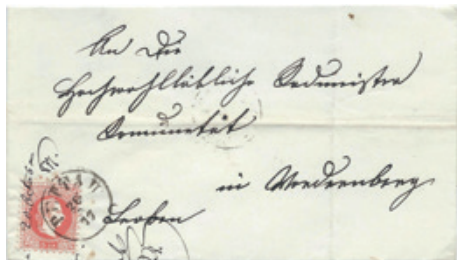 An Die
Hochwohllöbliche Radmeister
Comunität
in Vordernberg
Leoben
26